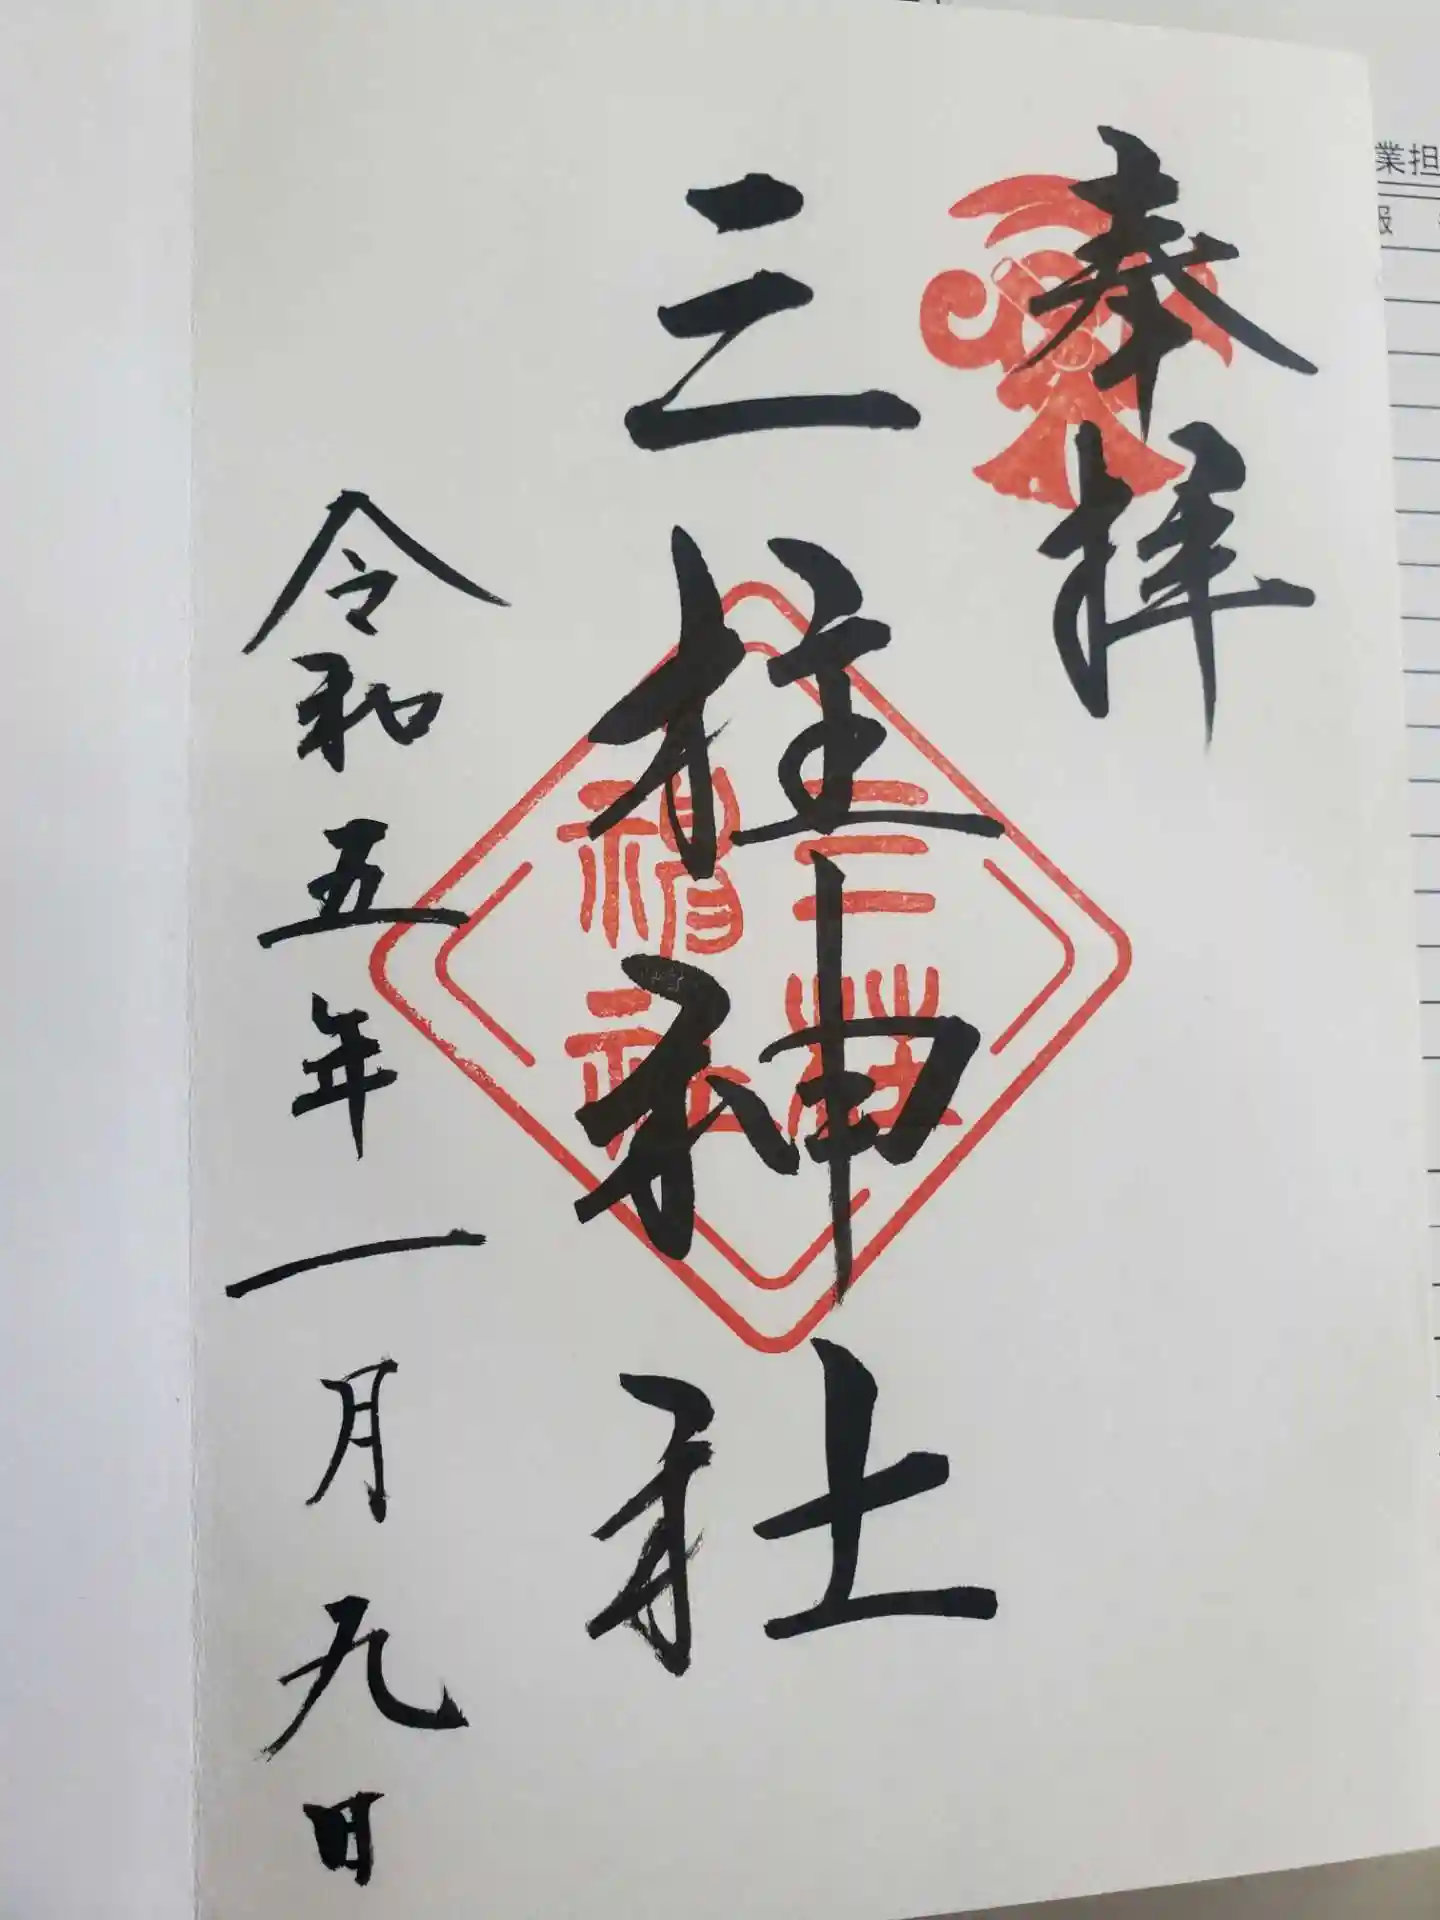 奉拝
三柱神社
三柱
神社
令和五年一月九日
業担
報